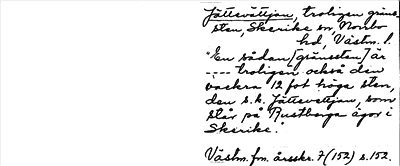 Jättesvättjan, troligen gräns-
sten, Skerike sn, Norrbo
hd, Västm. l.
"En sådan [gränssten] är
---- troligen också den
vackra 12 fot höga sten,
den s.k. Jättesvettjan, som
står på Rustberga ägor i
Skerike."
Västm. fm. årsskr. 7 (152) s. 152.